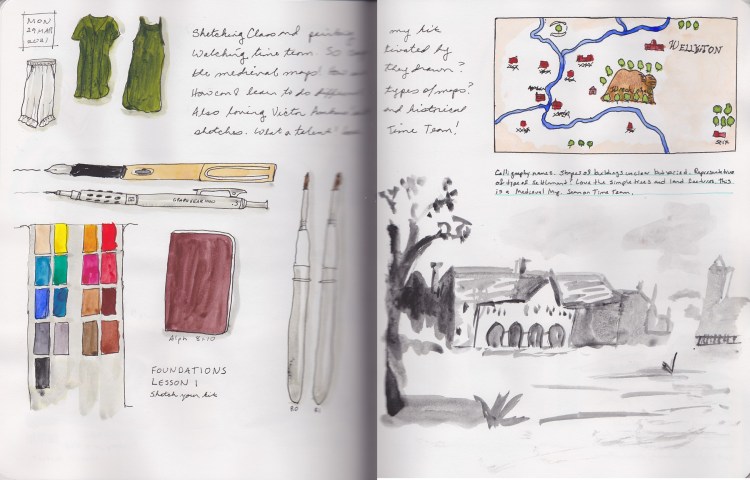 MON
29 MAR
2021
Sketching Class and painting
Watching time team. So
ble medieval maps!
How can I learn to do different
Also loving Victor
sketches. What a talent!
GRAPHGEAR 1000
.5
Alpha 8x10
FOUNDATIONS
LESSON 1
Sketch your kit
my kit
tivated by
they drawn?
types of maps?
and historical
Time Team!
WELLINGTON
Calligraphy names. Shapes of buildings unclear but varied. Representative
of type of settlement? Love the simple trees and land features. This
is a Medieval Map. Seen on Time Team.